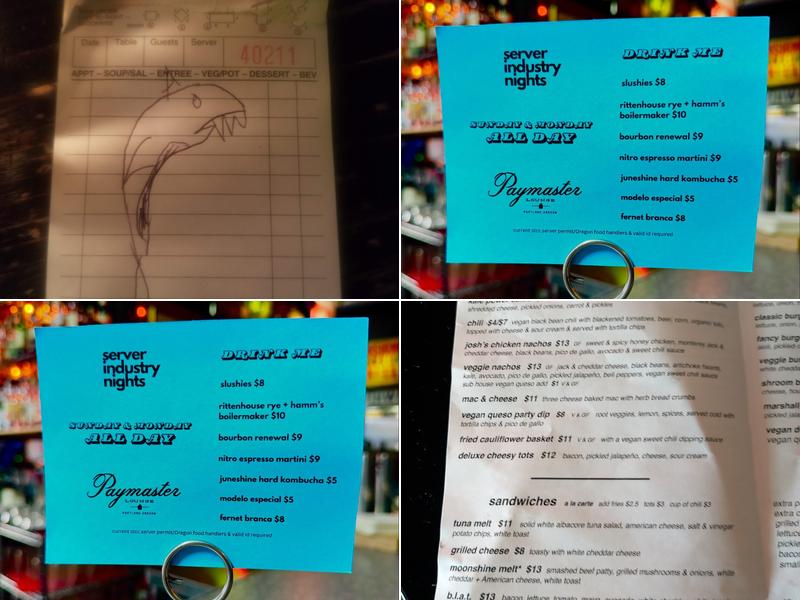 Date Table Guests Server 40211
APPT – SOUP/SAL – ENTREE – VEG/POT – DESSERT – BEV
server
industry
nights
SUNDAY & MONDAY
ALL DAY
Paymaster
LOUNGE
PORTLAND OREGON
DRINK ME
slushies $8
rittenhouse rye + hamm's
boilermaker $10
bourbon renewal $9
nitro espresso martini $9
juneshine hard kombucha $5
modelo especial $5
fernet branca $8
current olcc server permit/Oregon food handlers & valid id required
server
industry
nights
SUNDAY & MONDAY
ALL DAY
Paymaster
LOUNGE
PORTLAND OREGON
DRINK ME
slushies $8
rittenhouse rye + hamm's
boilermaker $10
bourbon renewal $9
nitro espresso martini $9
juneshine hard kombucha $5
modelo especial $5
fernet branca $8
current olcc server permit/Oregon food handlers & valid id required
shredded cheese, pickled onions, carrot & pickles
chili $4/$7 vegan black bean chili with blackened tomatoes, beer, corn,
topped with cheese & sour cream & served with tortilla chips
josh's chicken nachos $13 GF sweet & spicy honey chicken, monterey jack &
cheddar cheese, black beans, pico de gallo, avocado & sweet chili sauce
veggie nachos $13 GF jack & cheddar cheese, black beans, artichoke hearts,
kale, avocado, pico de gallo, pickled jalapeño, bell peppers, vegan sweet chili sauce
sub house vegan queso add $1 V & GF
mac & cheese $11 three cheese baked mac with herb bread crumbs
vegan queso party dip $8 V & GF root veggies, lemon, spices, served cold with
tortilla chips & pico de gallo
fried cauliflower basket $11 V & GF with a vegan sweet chili dipping sauce
deluxe cheesy tots $12 bacon, pickled jalapeño, cheese, sour cream
sandwiches a la carte add fries $2.5 tots $3 cup of chili $3
tuna melt $11 solid white albacore tuna salad, american cheese, salt & vinegar
potato chips, white toast
grilled cheese $8 toasty with white cheddar cheese
moonshine melt* $13 smashed beef patty, grilled mushrooms & onions, white
cheddar + American cheese, white toast
b.l.a.t. $13 bacon, lettuce, tomato,
classic
fancy
veggie
shroom
marshall
vegan
extra
extra
grilled